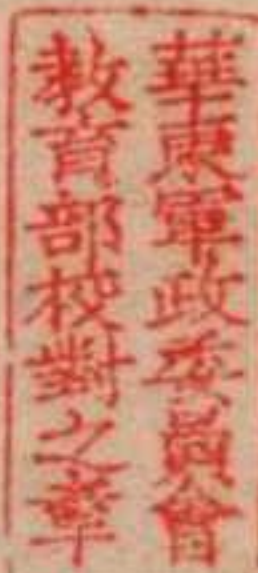 華東軍政委員會
教育部校對之章